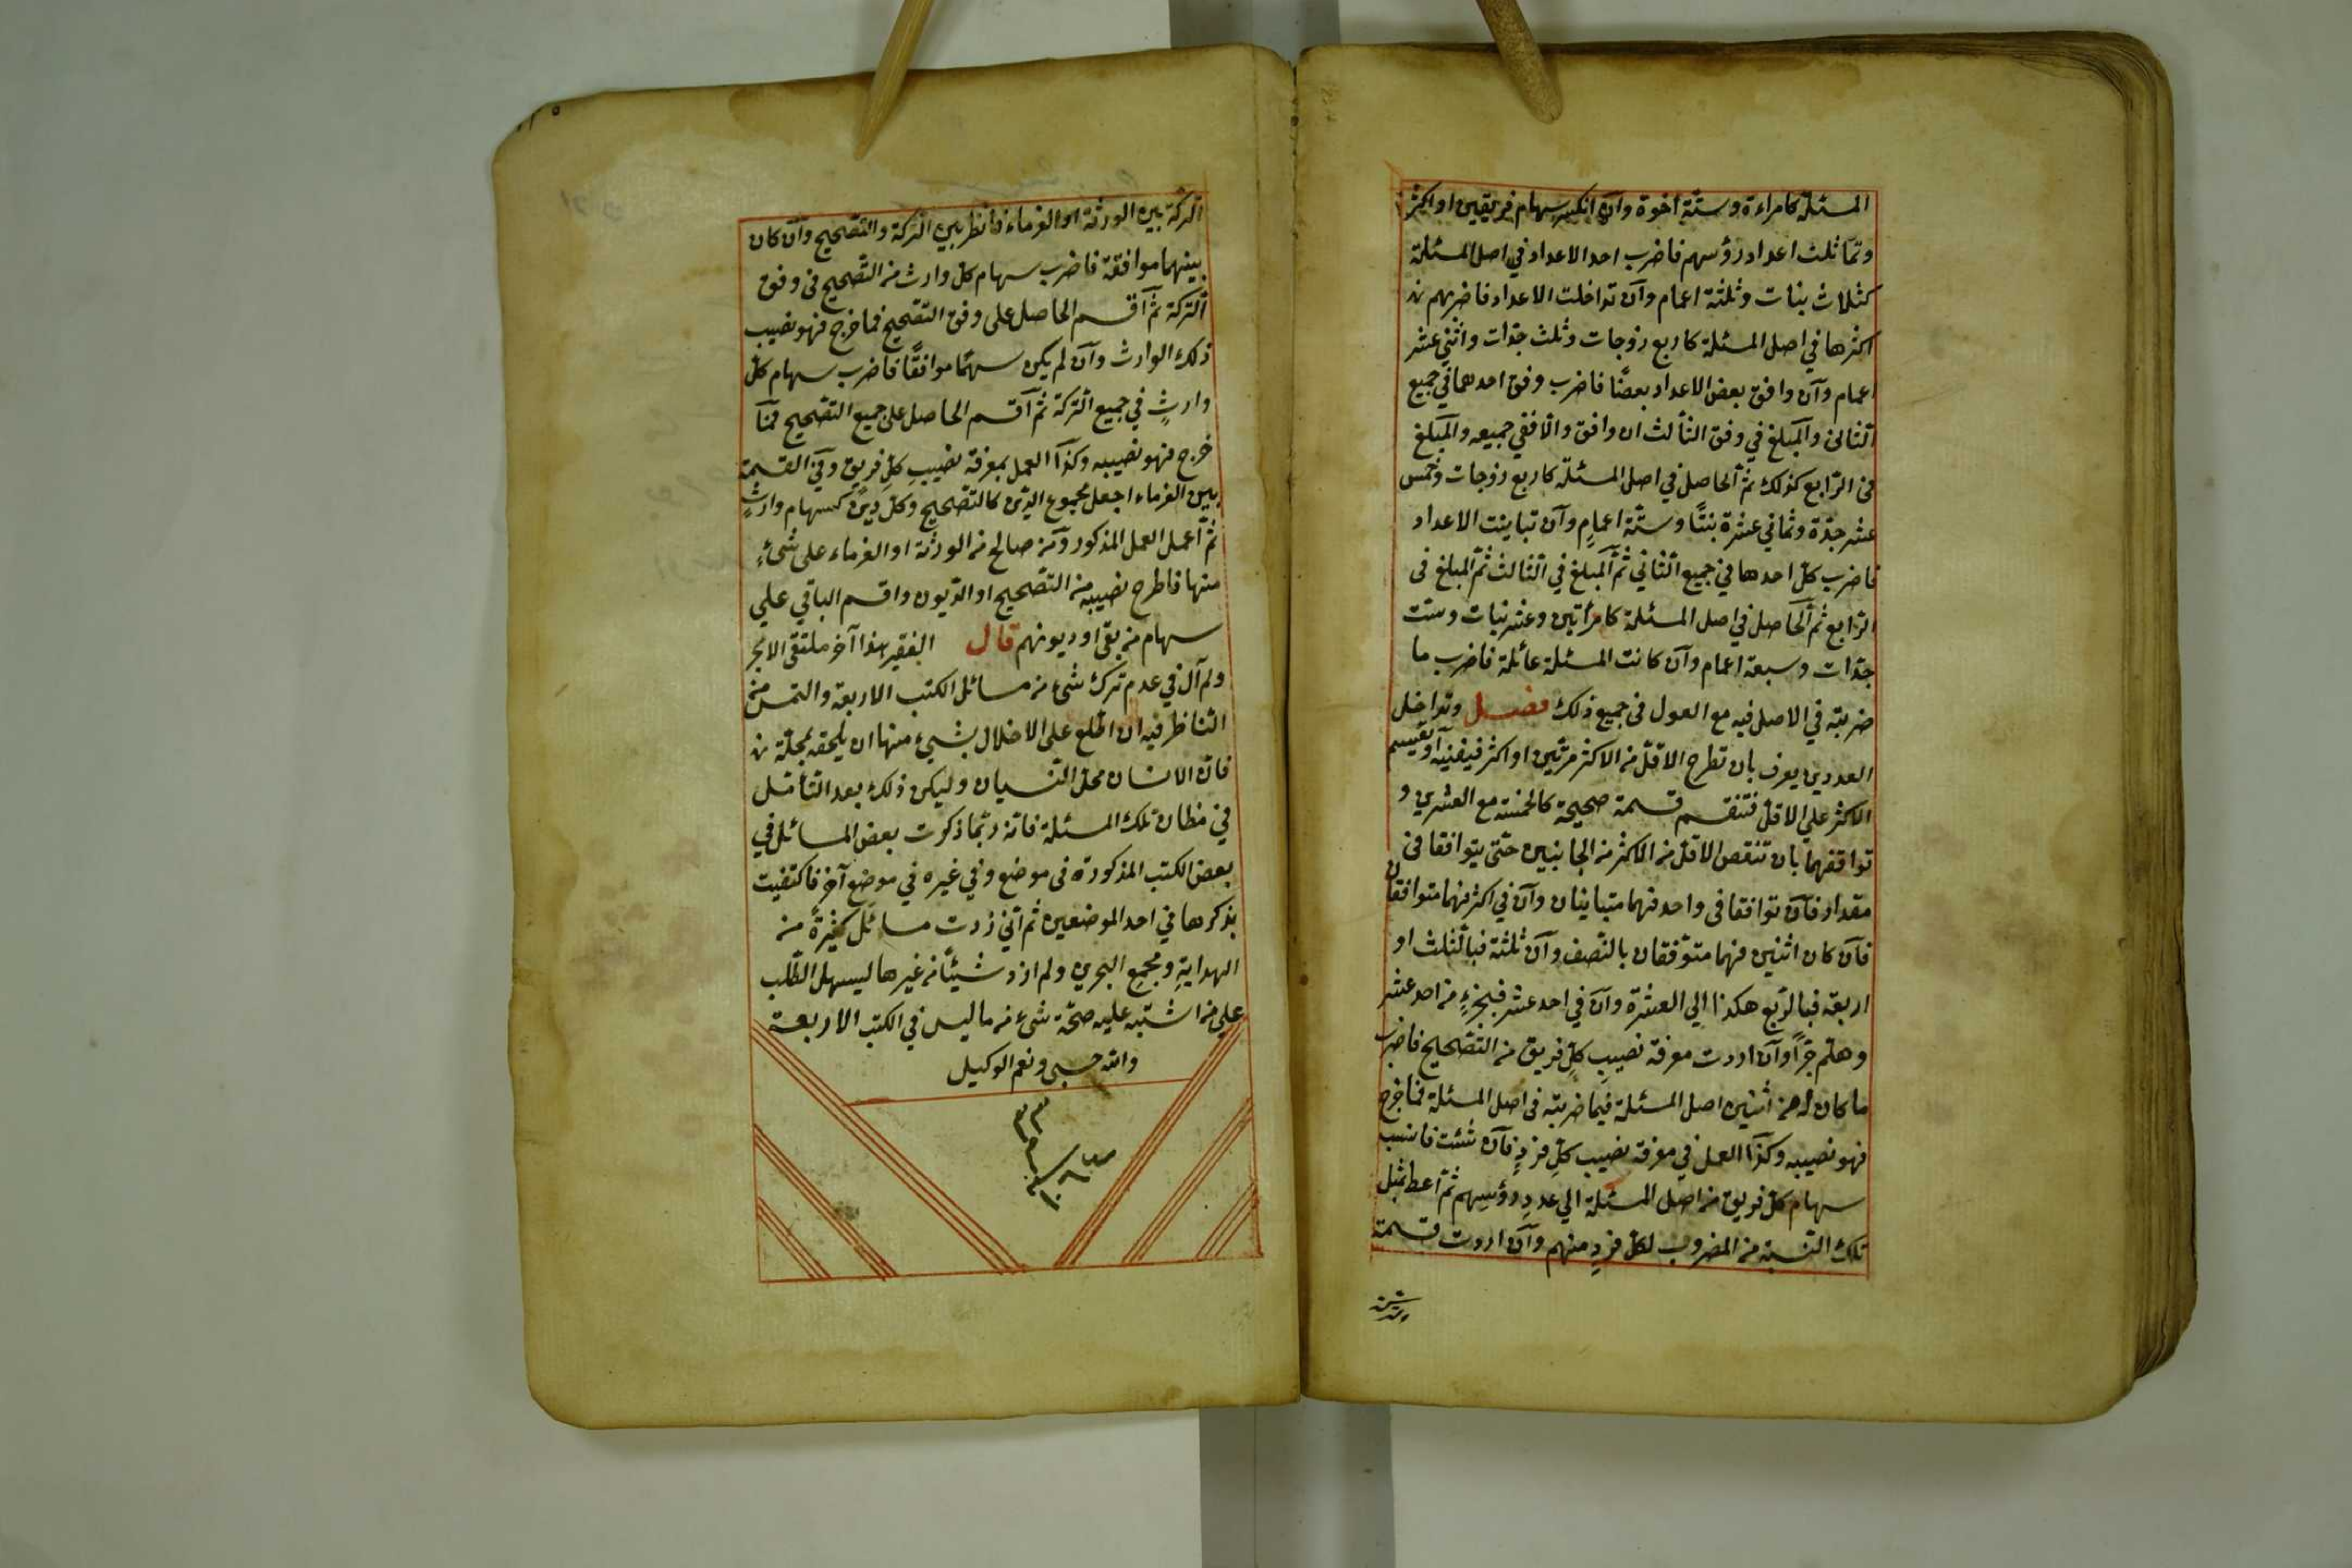 المسئلة كامراءة وستة اخوة وان انكسر سهام فريقين او اكثر
وتماثلت اعداد رؤسهم فاضرب احد الاعداد في اصل المسئلة
كثلاث بنات وثلثة اعمام وان تداخلت الاعداد فاضربهم
اكثرها في اصل المسئلة كاربع زوجات وثلث جدات واثني عشر
اعمام وان وافق بعض الاعداد بعضا فاضرب وفق احدهما في جميع
الثاني والمبلغ في وفق الثالث ان وافق والا ففي جميعه والمبلغ
في الرابع كذلك ثم الحاصل في اصل المسئلة كاربع زوجات وخمس
عشر جدة وثماني عشرة بنتا وستة اعمام وان تباينت الاعداد
فاضرب كل احدها في جميع الثاني ثم المبلغ في الثالث ثم المبلغ في
الرابع ثم الحاصل في اصل المسئلة كامرأتين وعشر بنات وست
جدات وسبعة اعمام وان كانت المسئلة عائلة فاضرب ما
ضربته في الاصل فيه مع العول في جميع ذلك فصل وتداخل
العددين يعرف بان تطرح الاقل من الاكثر مرتين او اكثر فيفنيه او تقسيم
الاكثر علي الاقل فتنقسم قسمة صحيحة كالخمسة مع العشرين و
توافقهما بان تنقص الاقل من الاكثر من الجانبين حتى يتوافقا في
مقدار فان توافقا في واحد فهما متباينان وان في اكثر فهما متوافقان
فان كان اثنين فهما متوفقان بالنصف وان ثلثة فبالثلث او
اربعة فبالربع هكذا الي العشرة وان في احد عشر فبجزء من احد عشر
وهلم جرا وان اردت معرفة نصيب كل فريق من التصحيح فاضرب
ما كان له من اثنين اصل المسئلة فيما ضربته في اصل المسئلة فما خرج
فهو نصيبه وكذا العمل في معرفة نصيب كل فرد فان شئت فانسب
سهام كل فريق من اصل المسئلة الي عدد رؤسهم ثم اعط بمثل
تلك النسبة من المضروب لكل فرد منهم وان اردت قسمة
التركة بين الورثة او الغرماء فانظر بين التركة والتصحيح وان كان
بينهما موافقة فاضرب سهام كل وارث من التصحيح في وفق
التركة ثم اقسم الحاصل على وفق التصحيح فما خرج فهو نصيب
ذلك الوارث وان لم يكن سهما موافقا فاضرب سهام كل
وارث في جميع التركة ثم اقسم الحاصل على جميع التصحيح فما
خرج فهو نصيبه وكذا العمل بمعرفة نصيب كل فريق وفي القسمة
بين الغرماء اجعل مجموع الدين كالتصحيح وكل دين كسهام وارث
ثم اعمل العمل المذكور ومن صالح من الورثة او الغرماء على شئ
منها فاطرح نصيبه من التصحيح او الديون واقسم الباقي علي
سهام من بقي او ديونهم قال الفقير هذا آخر ملتقى الابحر
ولم آل في عدم ترك شئ من مسائل الكتب الاربعة والتمس من
الناظر فيه ان اطلع على الاخلال بشيئ منها ان يلحقه بمحله
فان الانسان محل النسيان وليكن ذلك بعد التأمل
في مظان تلك المسئلة فانه ربما ذكرت بعض المسائل في
بعض الكتب المذكورة في موضع وفي غيره في موضع آخر فاكتفيت
بذكرها في احد الموضعين ثم اني زدت مسائل كثيرة من
الهداية ومجمع البحرين ولم ازد شيئا من غيرها ليسهل الطلب
علي من اشتبه عليه صحة شئ من ما ليس في الكتب الاربعة
والله حسبي ونعم الوكيل